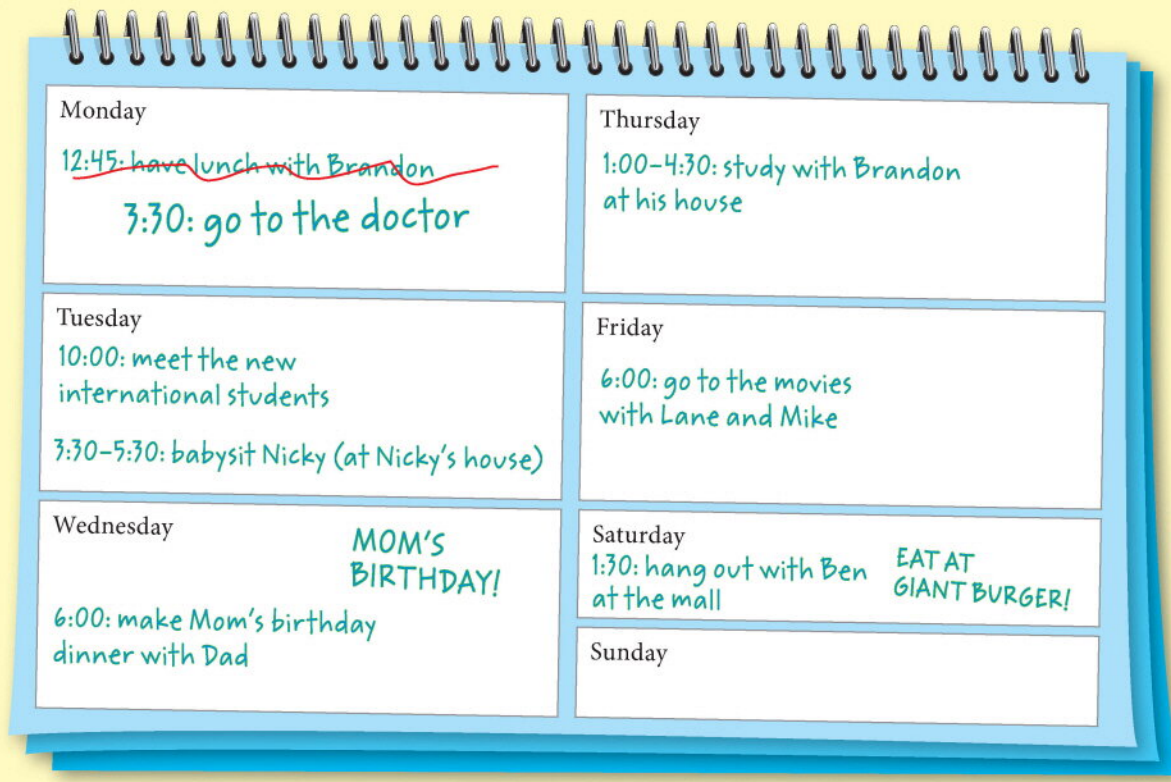 Monday
12:45: have lunch with Brandon
3:30: go to the doctor
Tuesday
10:00: meet the new
international students
3:30–5:30: babysit Nicky (at Nicky's house)
Wednesday
MOM'S
BIRTHDAY!
6:00: make Mom's birthday
dinner with Dad
Thursday
1:00–4:30: study with Brandon
at his house
Friday
6:00: go to the movies
with Lane and Mike
Saturday
1:30: hang out with Ben
at the mall
EAT AT
GIANT BURGER!
Sunday